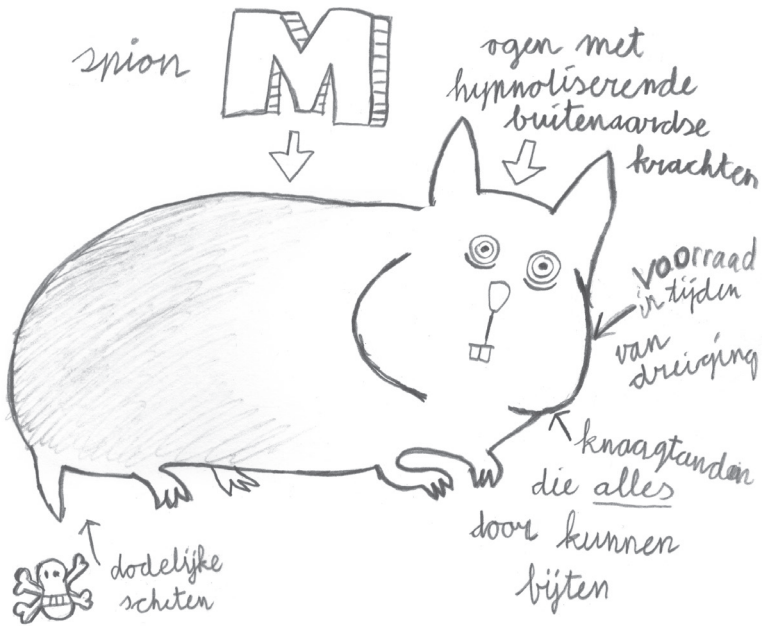 spion
M
ogen met
hypnotiserende
buitenaardse
krachten
voorraad
in tijden
van
dreiging
knaagtanden
die alles
door kunnen
bijten
dodelijke
scheten